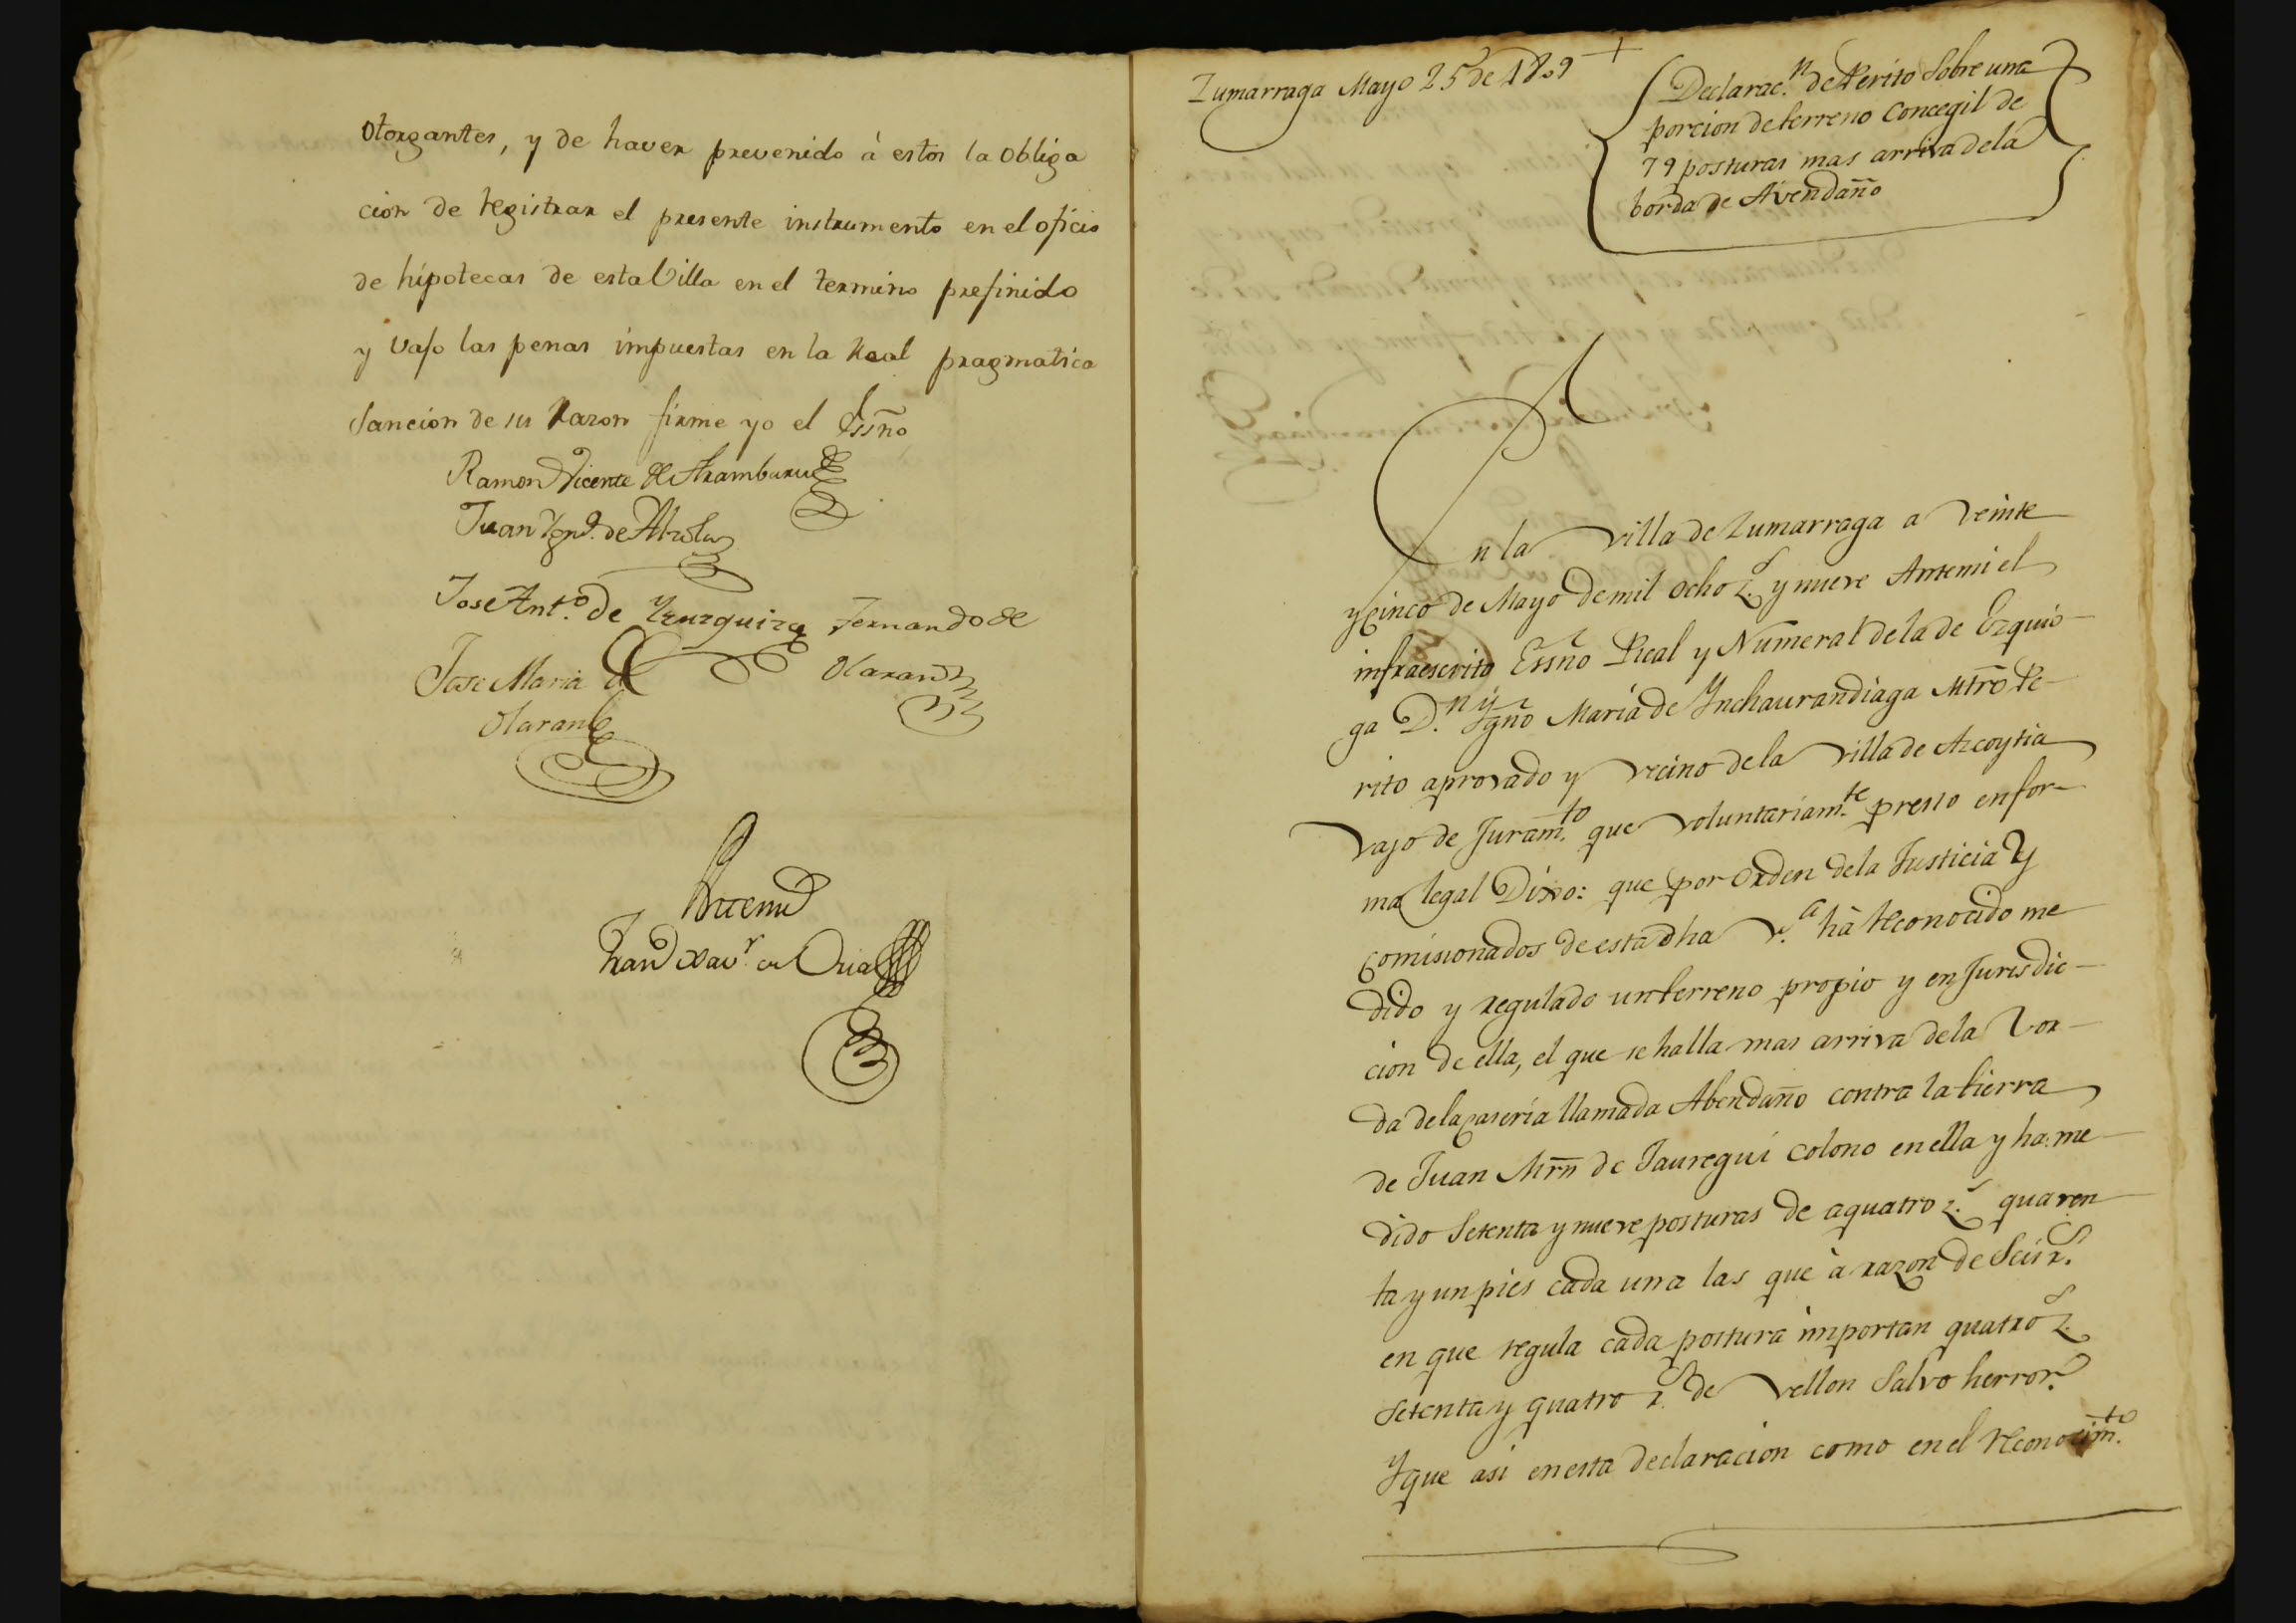 otorgantes, y de haver prevenido à estos la obliga
cion de registrar el presente instrumento en el oficio
de hipotecas de esta Villa en el termino prefinido
y vajo las penas impuestas en la Real pragmatica
Sancion de su razon firme yo el Essño
Ramon Vicente de Aramburu
Juan Ygn.º de
Jose Ant.º de Yzuzquiza Fernando de
Olaran
Jose Maria de
Olaran
Antemi
Fran Xav.r de Oria
Zumarraga Mayo 25 de 1809
Declarac.n de Perito Sobre una
porcion de terreno Concegil de
79 posturas mas arriva de la
borda de Avendaño
En la villa de Zumarraga a veinte
y cinco de Mayo de mil ocho z.s y nueve Antemi el
infraescrito Essño Real y Numeral de la de Ezquio-
ga D.n Ygño Maria de Ynchaurandiaga Mtrō Pe-
rito aprovado y vecino de la villa de Azcoytia
vajo de Juram.to que voluntariam.te presto en for-
ma legal Dixo: que por orden de la Justicia y
Comisionados de esta dha V.a hà reconocido me
dido y regulado un terreno propio y en Jurisdic-
cion de ella, el que se halla mas arriva de la Vor-
da de la caseria llamada Abendaño contra la tierra
de Juan Mrñ de Jauregui colono en ella y ha me-
dido Setenta y nueve posturas de a quatro z.s quaren-
ta y un pies cada una las que à razon de Seis r.s
en que regula cada postura importan quatro z.s
Setenta y quatro r.s de vellon Salvo herror.
Y que asi en esta declaracion como en el reconocim.to